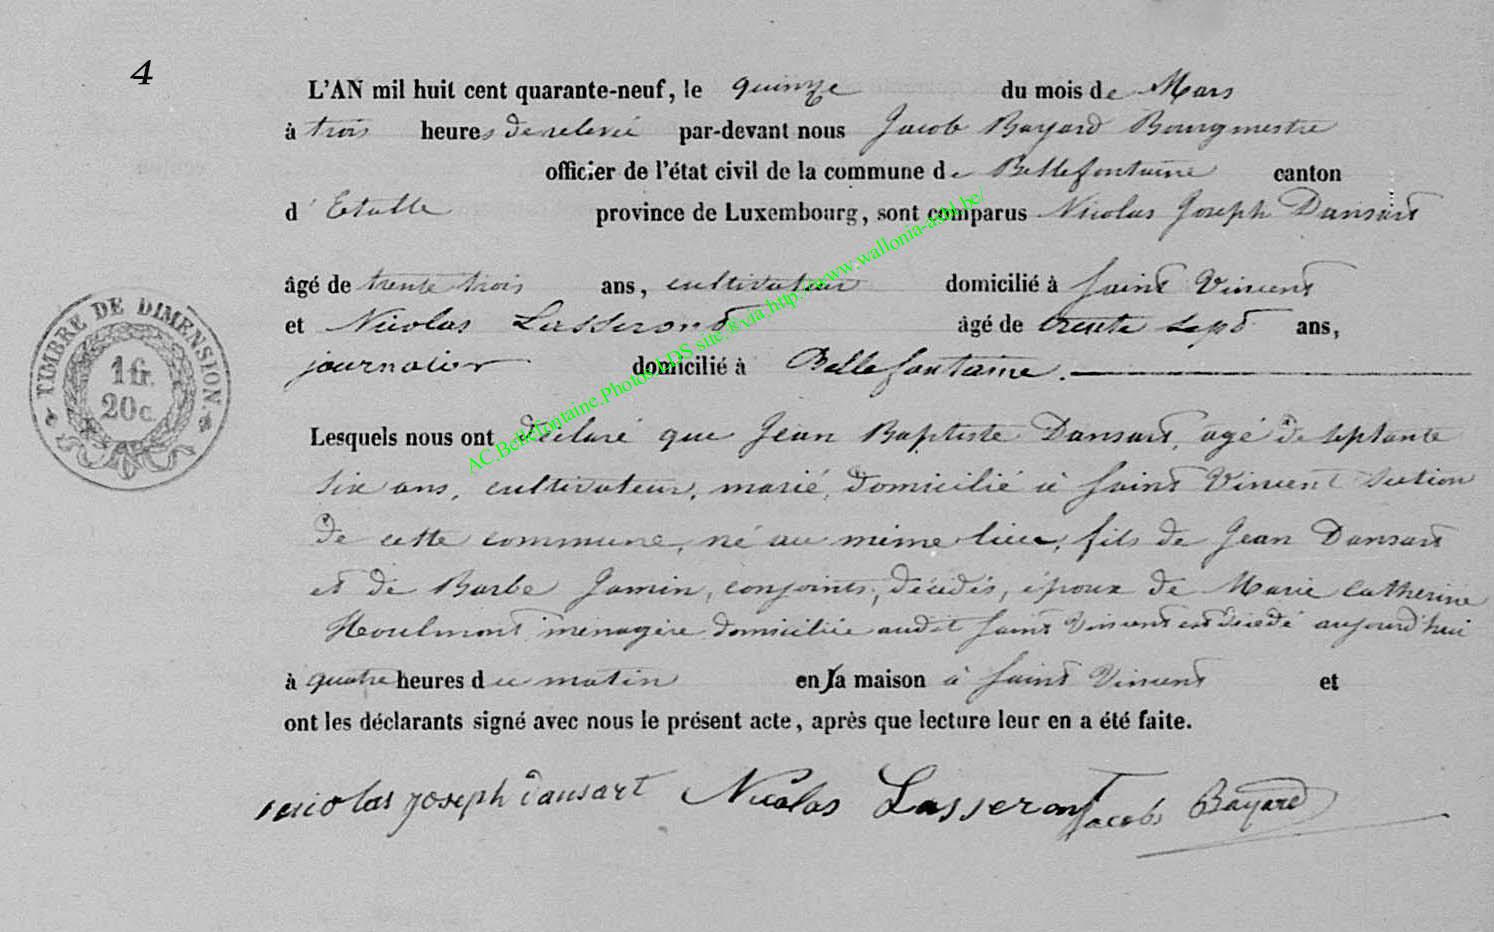 4
L'AN mil huit cent quarante-neuf, le quinze du mois de Mars
à trois heures de relevée par-devant nous Jacob Bayard Bourgmestre
officier de l'état civil de la commune de Bellefontaine canton
d'Etalle province de Luxembourg, sont comparus Nicolas Joseph Dansart
âgé de trente trois ans, cultivateur domicilié à Saint Vincent
et Nicolas Lasseront âgé de trente sept ans,
journalier domicilié à Bellefontaine.
Lesquels nous ont déclaré que Jean Baptiste Dansart, agé de septante
six ans, cultivateur, marié, domicilié à Saint Vincent Section
de cette commune, né au même lieu, fils de Jean Dansart
et de Barbe Jamin, conjoints, décédés, époux de Marie Catherine
ménagère domiciliée audit Saint Vincent est décédé aujourd'hui
à quatre heures du matin en sa maison à Saint Vincent et
ont les déclarants signé avec nous le présent acte, après que lecture leur en a été faite.
nicolas joseph dansart Nicolas Lasseront Jacob Bayard
TIMBRE DE DIMENSION.
1 fr.
20 c.
AC.Bellefontaine.Photos LDS site.®via http://www.wallonia-asbl.be/